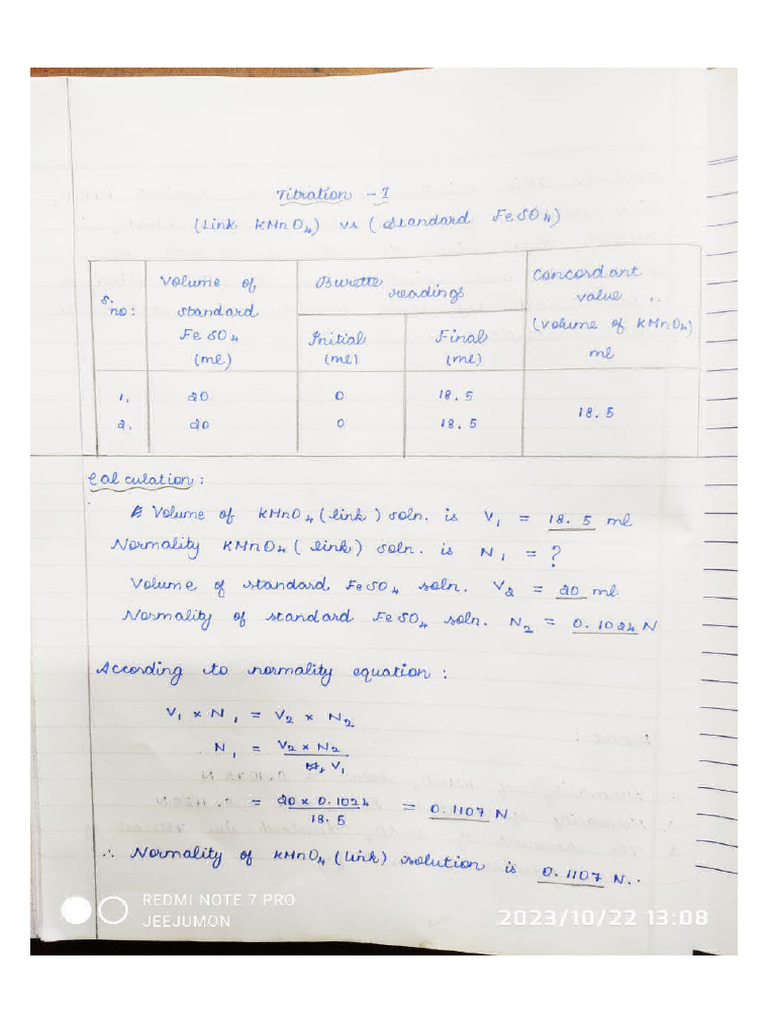 Titration - I
(Link KMnO4) vs (Standard FeSO4)
S. no:
Volume of standard FeSO4 (ml)
Burette readings
Initial (ml)
Final (ml)
Concordant value (Volume of KMnO4) ml
1. 20 0 18.5
2. 20 0 18.5
18.5
Calculation:
Volume of KMnO4 (link) soln. is V1 = 18.5 ml
Normality KMnO4 (link) soln. is N1 = ?
Volume of standard FeSO4 soln. V2 = 20 ml
Normality of standard FeSO4 soln. N2 = 0.1024 N
According to normality equation:
V1 × N1 = V2 × N2
N1 = V2 × N2 / V1
= 20 × 0.1024 / 18.5 = 0.1107 N
∴ Normality of KMnO4 (link) solution is 0.1107 N.
REDMI NOTE 7 PRO
JEEJUMON
2023/10/22 13:08